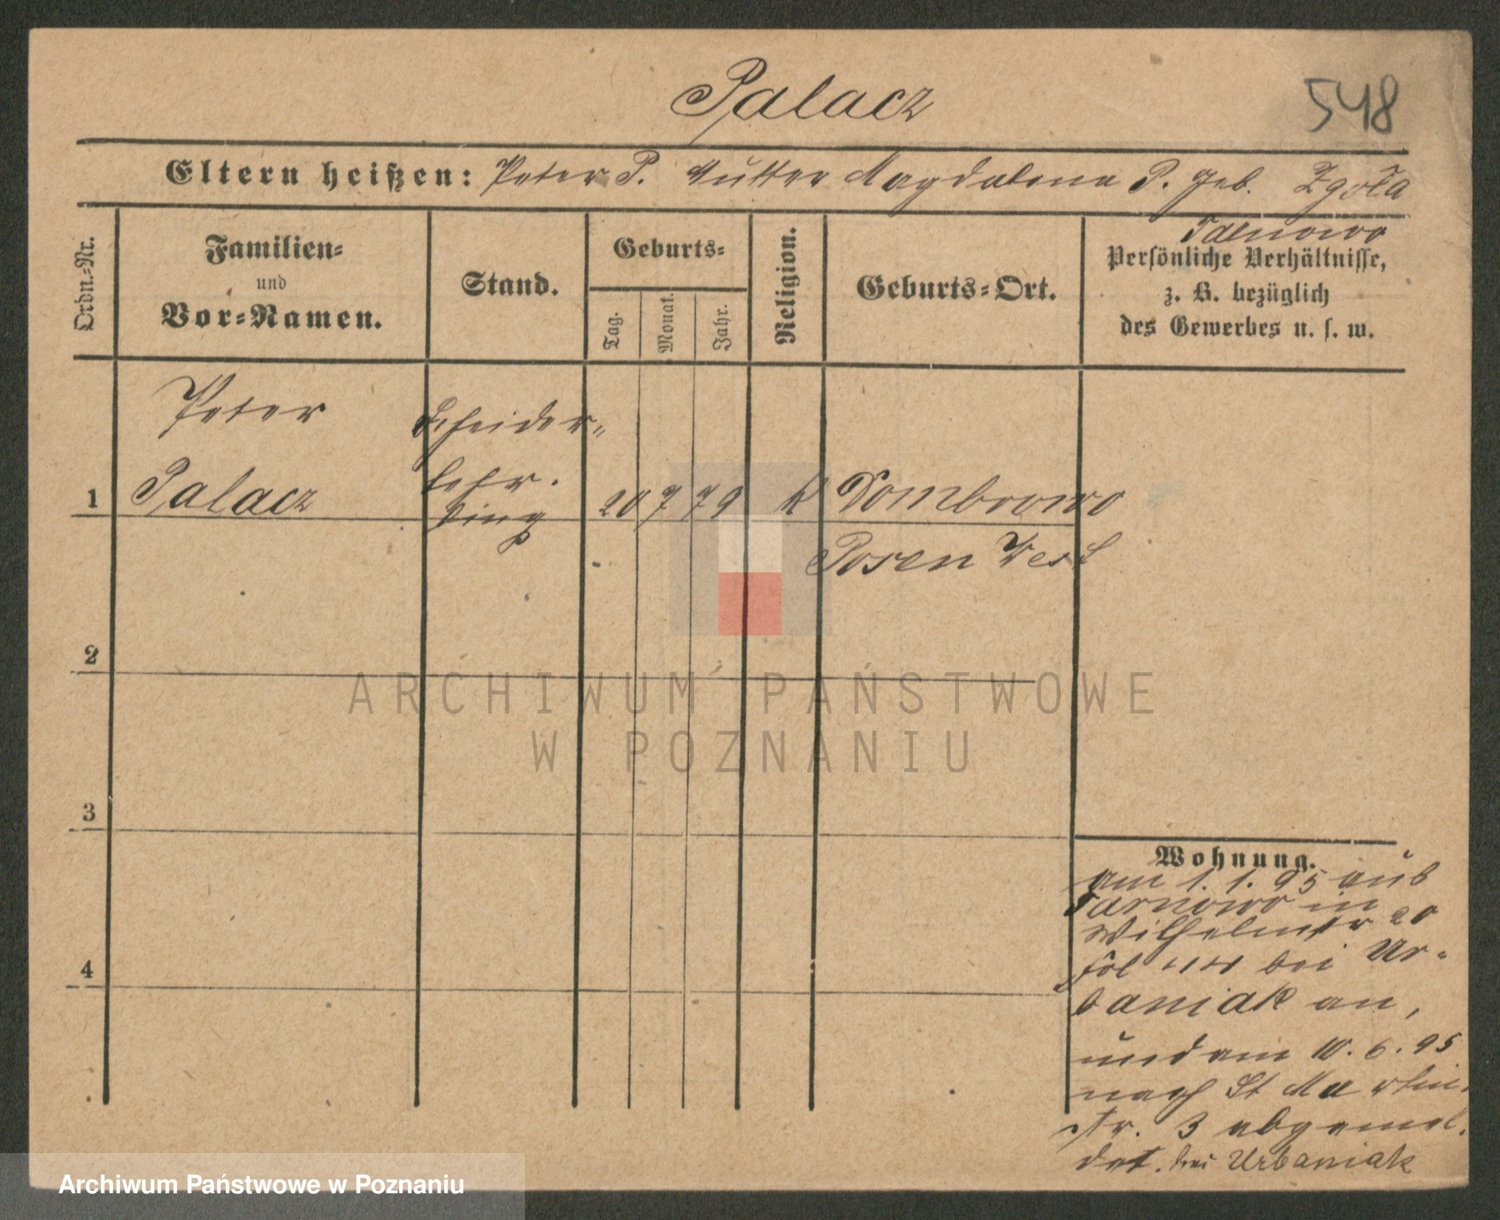 Palacz
548
Eltern heißen: Peter P. Mutter Magdalena P. geb. Zgoła
Tarnowo
Ordn.-Nr.
Familien-
und
Vor-Namen.
Stand.
Geburts-
Tag.
Monat.
Jahr.
Religion.
Geburts-Ort.
Persönliche Verhältnisse,
z. B. bezüglich
des Gewerbes u. s. w.
1
Peter
Palacz
Schneider-
lehr-
ling
20 7 79
k
Dombrowo
Posen West
2
3
4
Wohnung.
am 1. 1. 95 aus
Tarnowo in
Wilhelmstr 20
bei Ur-
baniak an,
und am 10. 6. 95
nach St Martin
str. 3 abgemel.
det. bei Urbaniak
ARCHIWUM PAŃSTWOWE
W POZNANIU
Archiwum Państwowe w Poznaniu